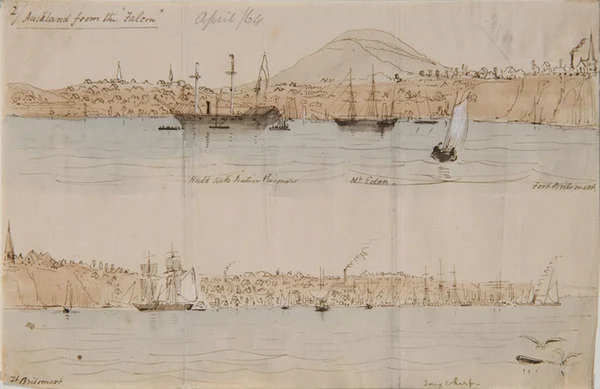 2/ Auckland from the "Falcon"
April /64
Hulk with Native Prisoners
Mt. Eden.
Fort Britomart
Ft Britomart
Long Wharf.